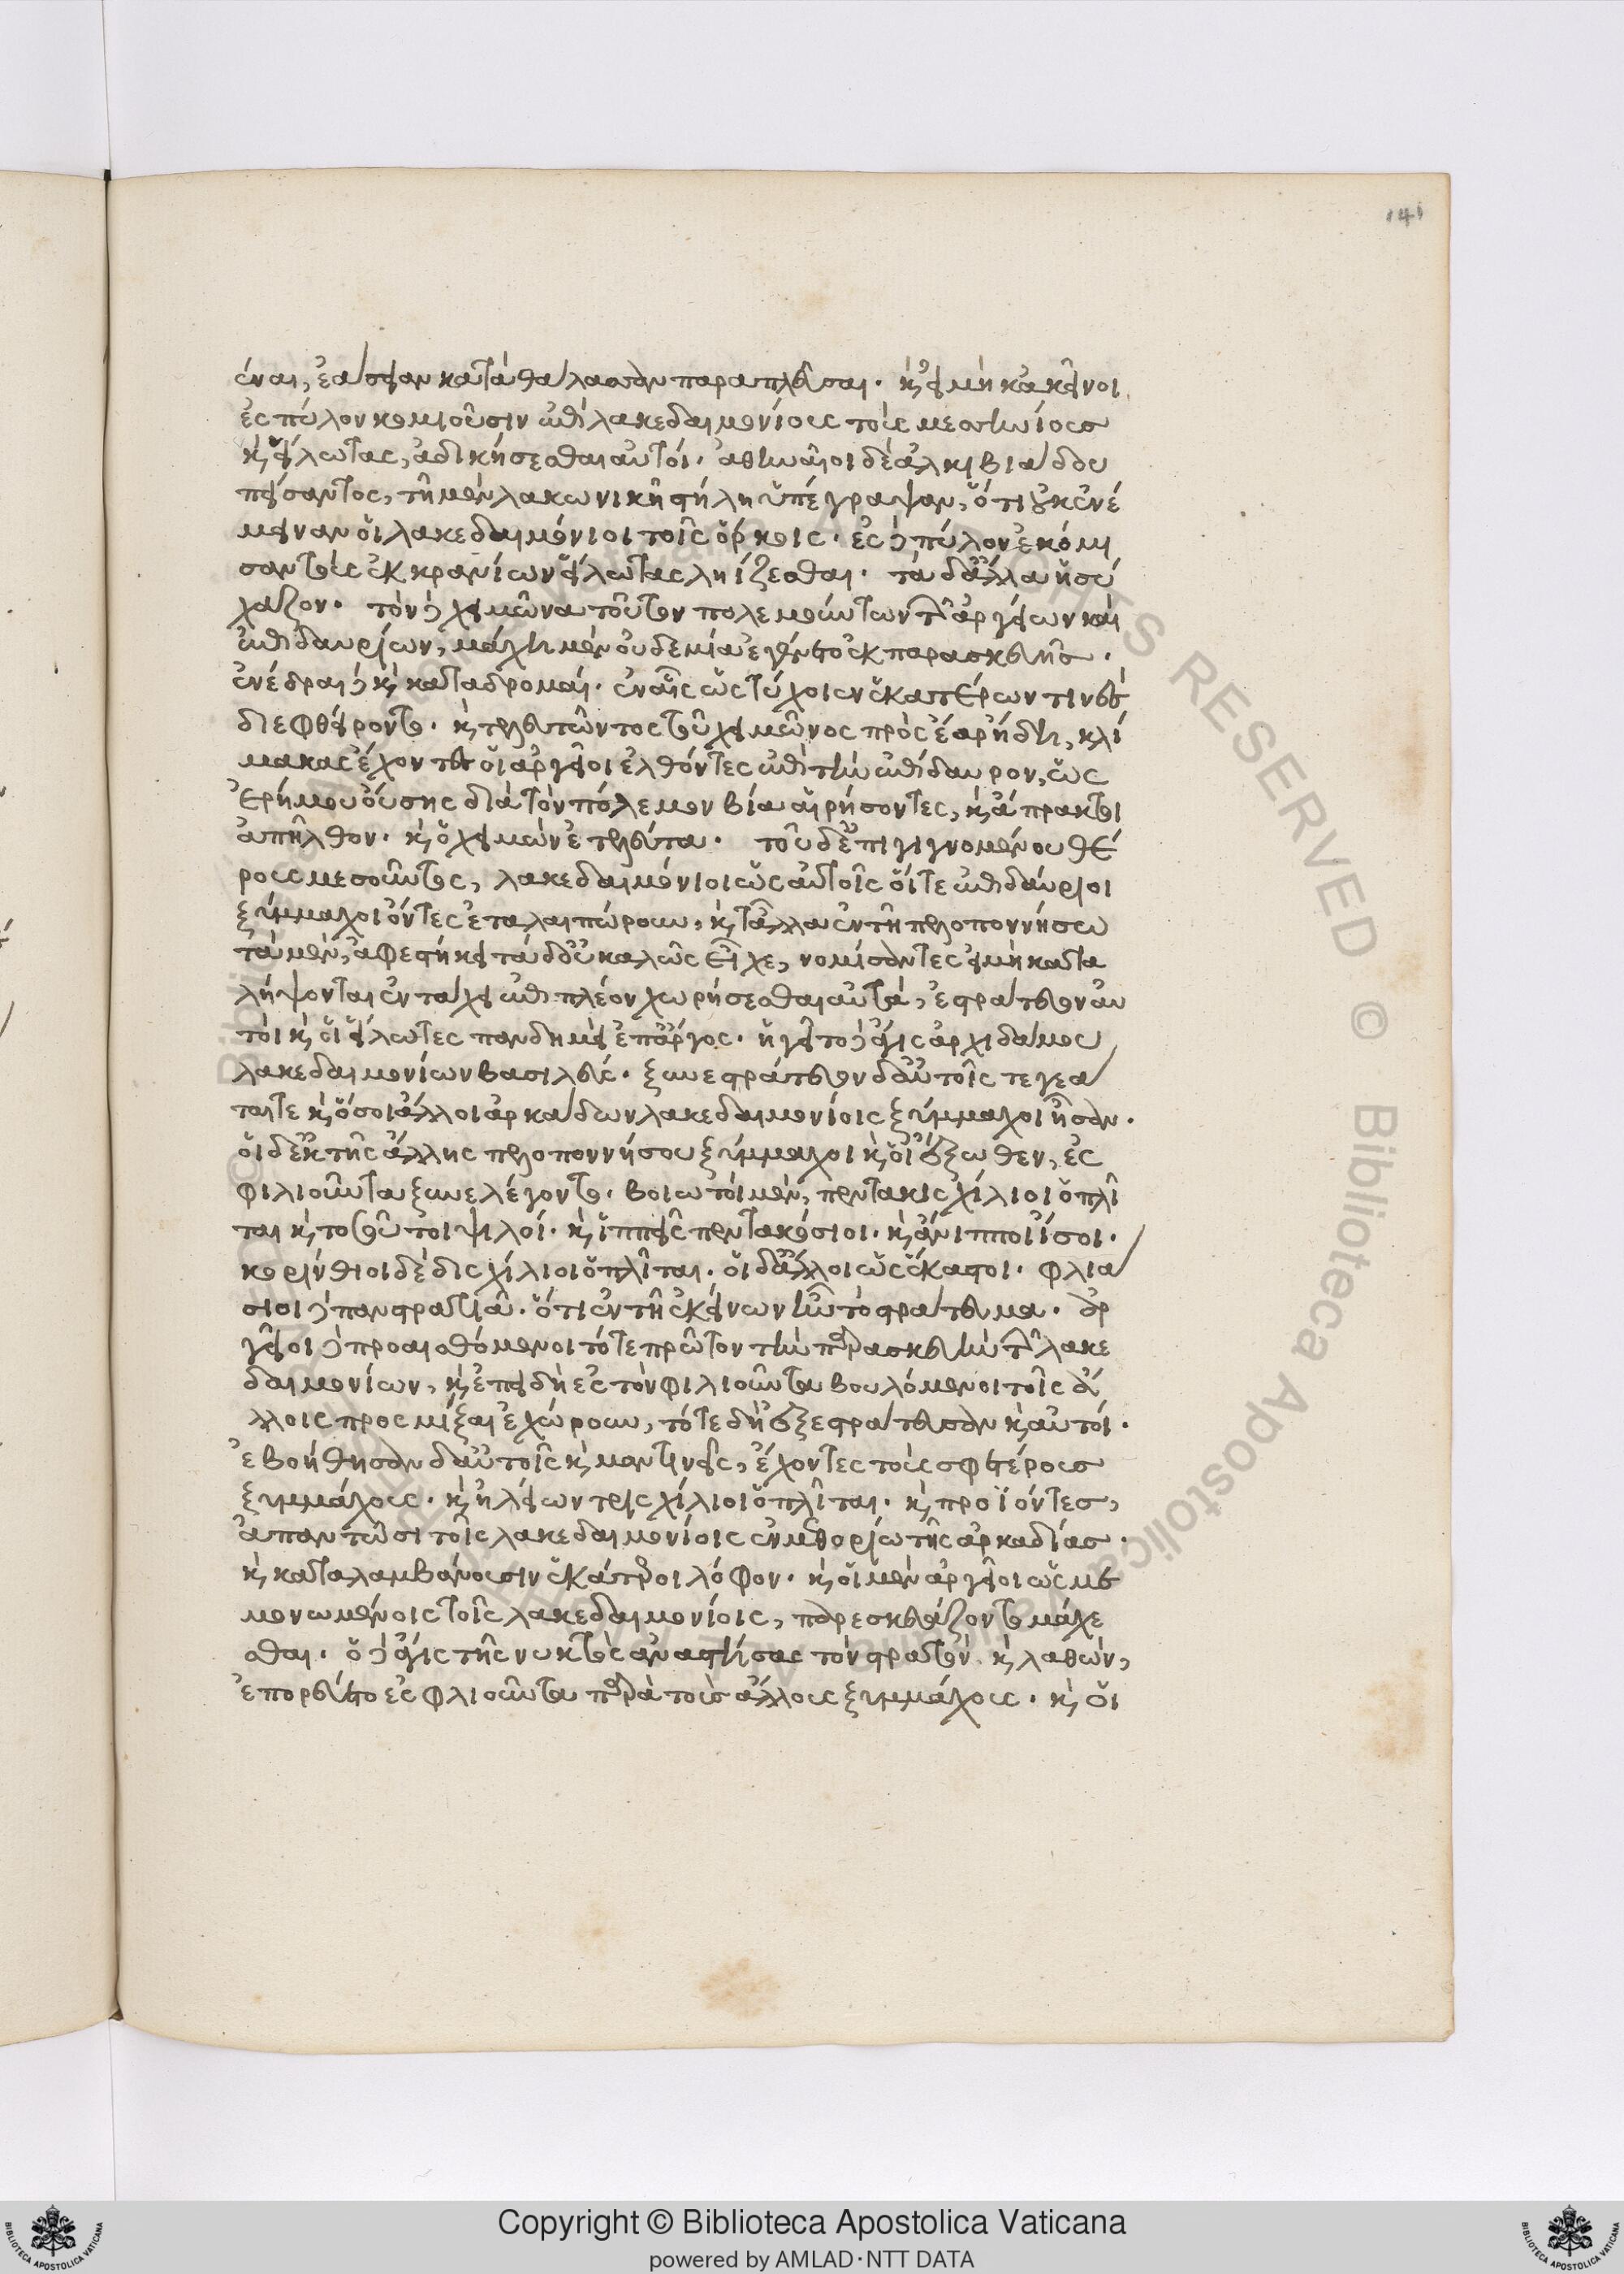 141
έναι, ἐάσειαν κατὰ θάλασσαν παραπλεῦσαι. κ εἰ μὴ κἀκεῖνοι
ἐς πύλον κομιοῦσιν ἐπὶ λακεδαιμονίους τοὺς μεσσηνίους
κ εἵλωτας, ἀδικήσεσθαι αὐτοί. ἀθηναῖοι δὲ ἀλκιβιάδου
πείσαντος, τῇ μὲν λακωνικῇ στήλῃ ὑπέγραψαν, ὅτι οὐκ ἐνέ
μειναν οἱ λακεδαιμόνιοι τοῖς ὅρκοις. ἐς δὲ πύλον ἐκόμι
σαν τοὺς ἐκ κρανίων εἵλωτας ληίζεσθαι. τὰ δ' ἄλλα ἡσύ
χαζον. τὸν δὲ χειμῶνα τοῦτον πολεμούντων τῶν ἀργείων καὶ
ἐπιδαυρίων, μάχη μὲν οὐδεμία ἐγένετο ἐκ παρασκευῆς.
ἐνέδραι δὲ κ καταδρομαί. ἐν αἷς ὡς τύχοιεν ἑκατέρων τινες
διεφθείροντο. κ τελευτῶντος τοῦ χειμῶνος πρὸς ἔαρ ἤδη, κλί
μακας ἔχοντες οἱ ἀργεῖοι ἐλθόντες ἐπὶ τὴν ἐπίδαυρον, ὡς
ἐρήμου οὔσης διὰ τὸν πόλεμον βίᾳ αἱρήσοντες, κ ἄπρακτοι
ἀπῆλθον. κ ὁ χειμὼν ἐτελεύτα. τοῦ δ' ἐπιγιγνομένου θέ
ρους μεσοῦντος, λακεδαιμόνιοι ὡς αὐτοῖς οἵ τε ἐπιδαύριοι
ξύμμαχοι ὄντες ἐταλαιπώρουν. κ τἄλλα ἐν τῇ πελοποννήσῳ
τὰ μὲν, ἀφεστήκει τὰ δ' οὐ καλῶς εἶχε, νομίσαντες εἰ μὴ κατα
λήψονται ἐν τάχει ἐπὶ πλέον χωρήσεσθαι αὐτά, ἐστράτευον αὐ
τοὶ κ οἱ εἵλωτες πανδημεὶ ἐπ' ἄργος. ἡγεῖτο δὲ ἆγις ἀρχιδάμου
λακεδαιμονίων βασιλεύς. ξυνεστράτευον δ' αὐτοῖς τεγεᾶ
ται τε κ ὅσοι ἄλλοι ἀρκάδων λακεδαιμονίοις ξύμμαχοι ἦσαν.
οἱ δ' ἐκ τῆς ἄλλης πελοποννήσου ξύμμαχοι κ οἱ ἔξωθεν, ἐς
φιλιοῦντα ξυνελέγοντο. βοιωτοὶ μὲν, πεντακισχίλιοι ὁπλῖ
ται κ τοσοῦτοι ψιλοί. κ ἱππεῖς πεντακόσιοι. κ ἄνιπποι ἴσοι.
κορίνθιοι δὲ δισχίλιοι ὁπλῖται. οἱ δ' ἄλλοι ὡς ἕκαστοι. φλιά
σιοι δὲ πανστρατιᾷ. ὅτι ἐν τῇ ἐκείνων ἦν τὸ στράτευμα. ἀρ
γεῖοι δὲ προαισθόμενοι τότε πρῶτον τὴν παρασκευὴν τῶν λακε
δαιμονίων, κ ἐπειδὴ ἐς τὸν φιλιοῦντα βουλόμενοι τοῖς ἄ
λλοις προσμίξαι ἐχώρουν, τότε δὴ ἐξεστράτευσαν κ αὐτοί.
ἐβοήθησαν δ' αὐτοῖς κ μαντινεῖς, ἔχοντες τοὺς σφετέρους
ξυμμάχους. κ ἠλείων τρισχίλιοι ὁπλῖται. κ προϊόντες,
ἀπαντῶσι τοῖς λακεδαιμονίοις ἐν μεθορίῳ τῆς ἀρκαδίας.
κ καταλαμβάνουσιν ἑκάτεροι λόφον. κ οἱ μὲν ἀργεῖοι ὡς με
μονωμένοις τοῖς λακεδαιμονίοις, παρεσκευάζοντο μάχε
σθαι. ὁ δὲ ἆγις τῆς νυκτὸς ἀναστήσας τὸν στρατὸν κ λαθών,
ἐπορεύετο ἐς φλιοῦντα παρὰ τοὺς ἄλλους ξυμμάχους. κ οἱ
Copyright © Biblioteca Apostolica Vaticana
powered by AMLAD·NTT DATA